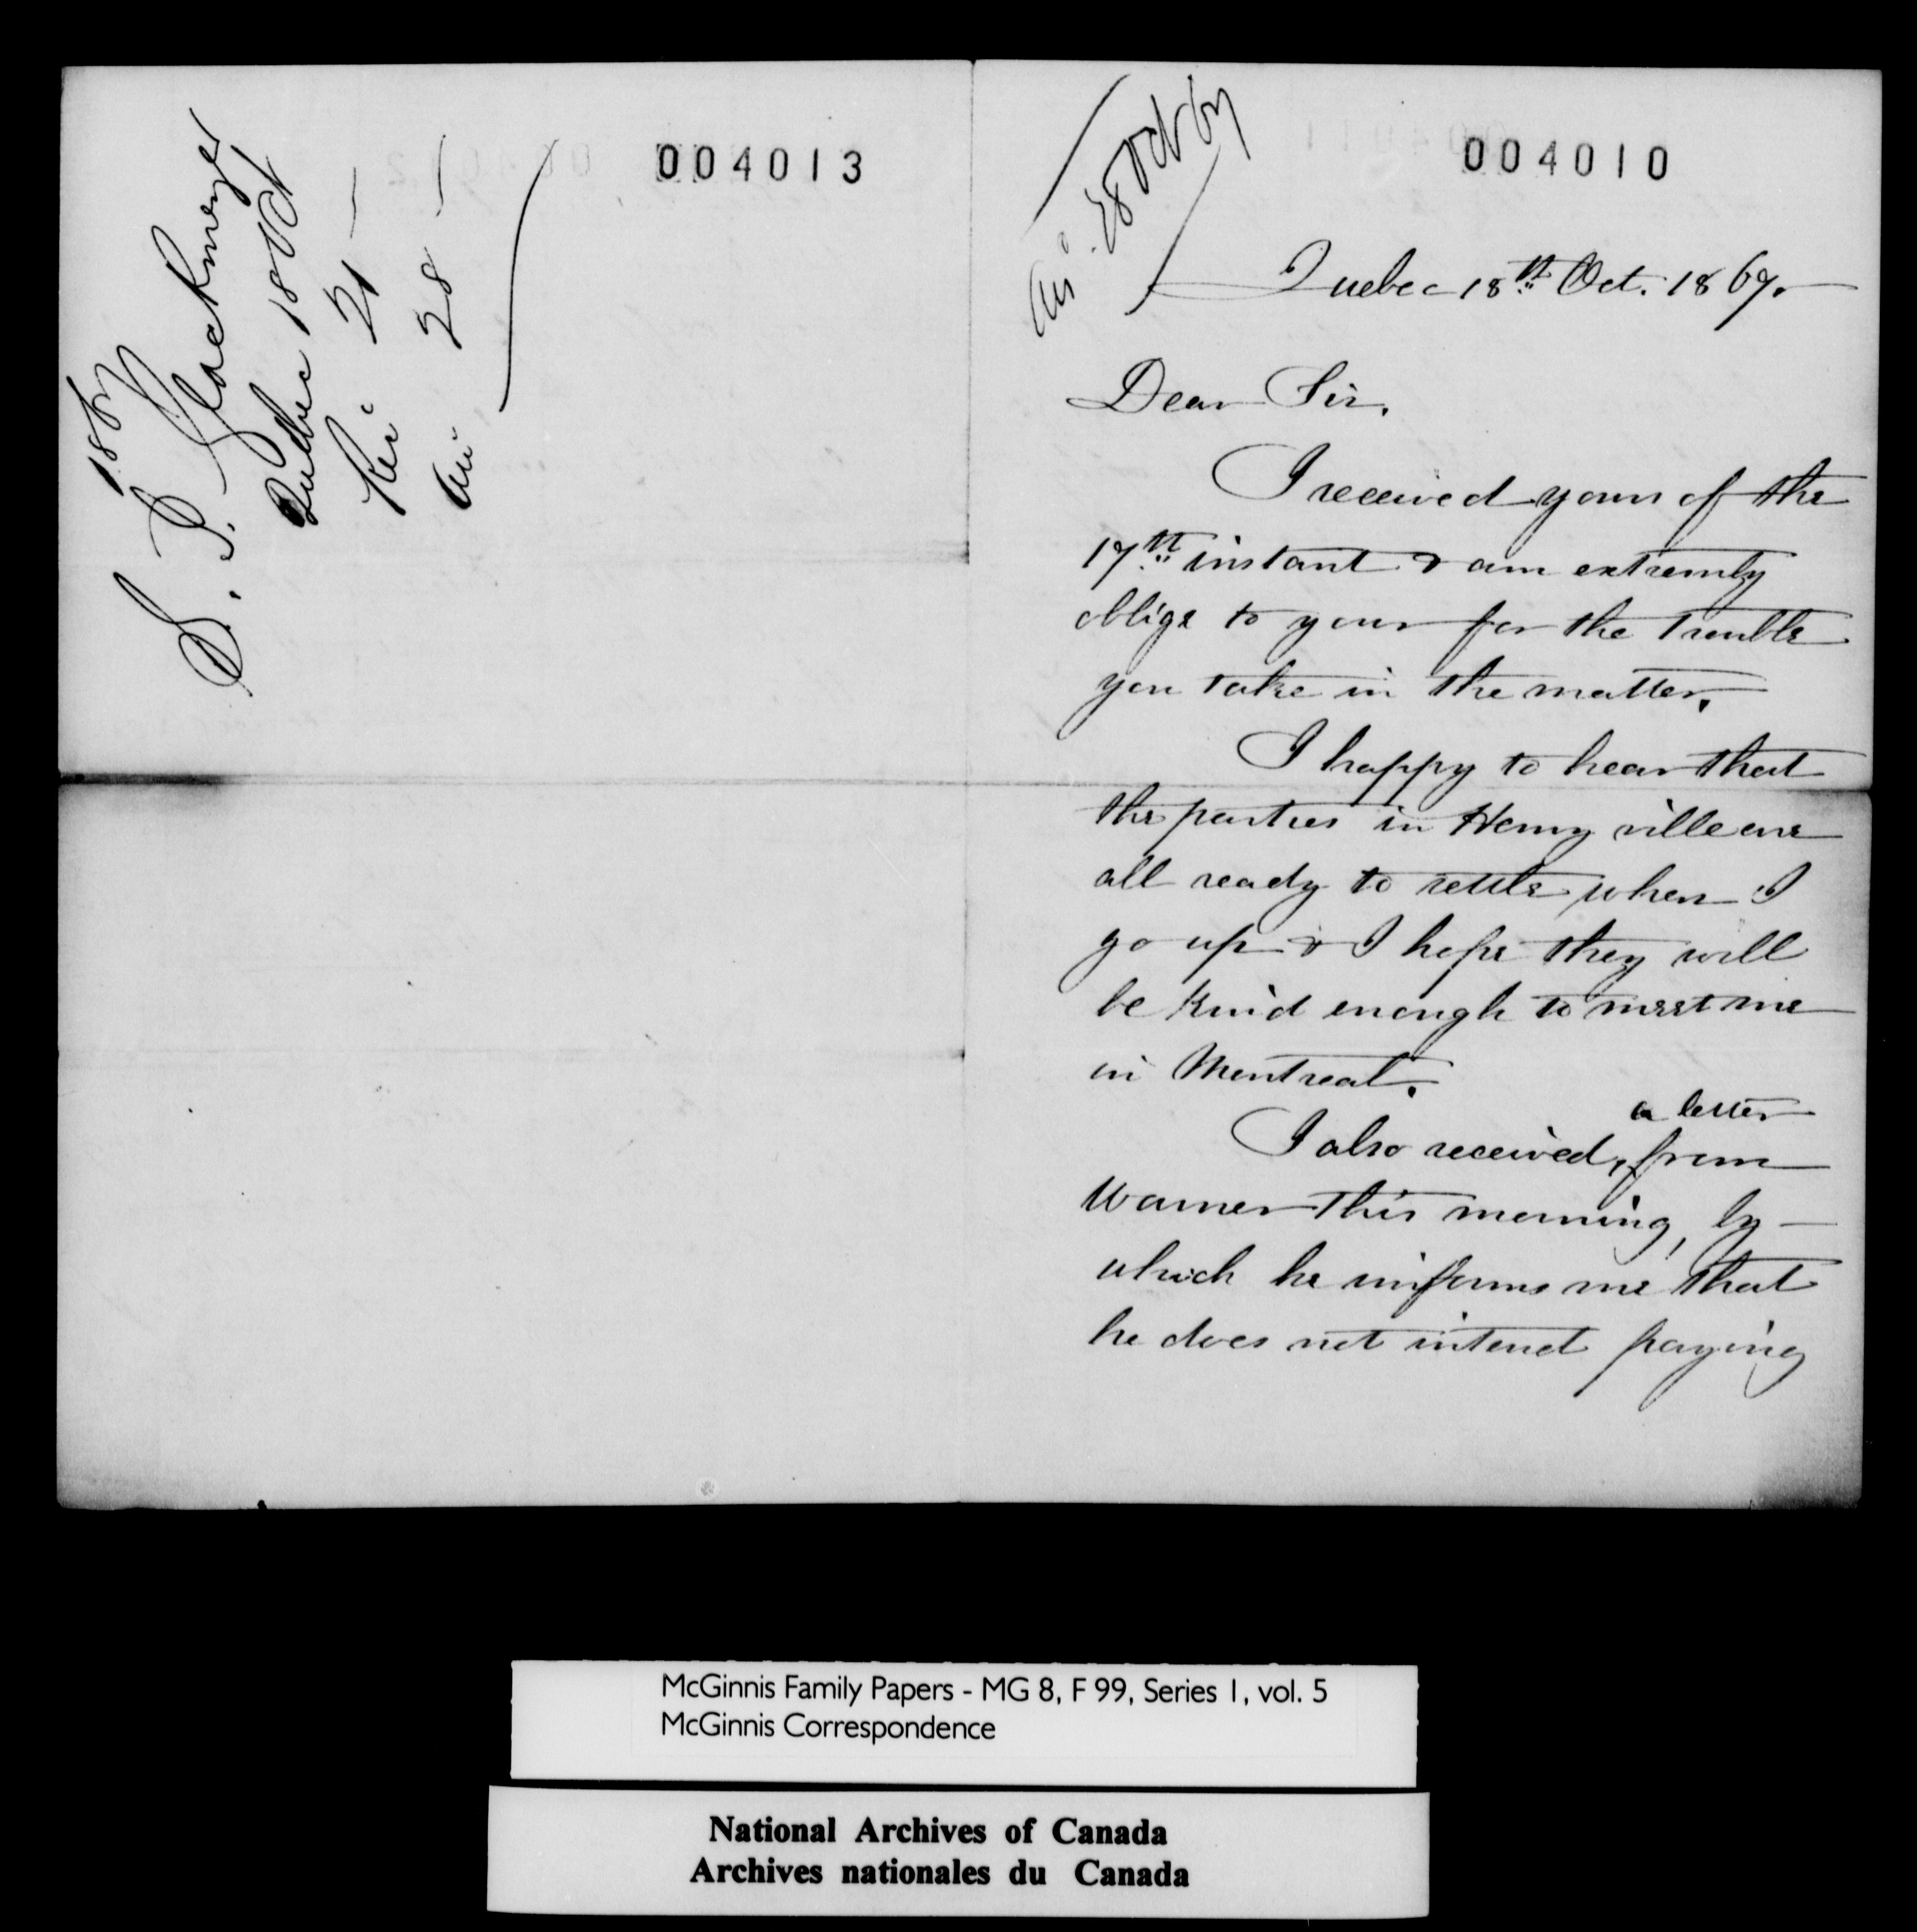 004013
1867
S. P. Glackmeyer
Quebec 18 Oct
Rec 21 —
An 28 —
004010
An. 28 Oct 67
Quebec 18th Oct. 1867.
Dear Sir.
I received yours of the
17th instant & am extremly
oblige to your for the trouble
you take in the matter.
I happy to hear that
the parties in Henry ville are
all ready to settle when I
go up & I hope they will
be kind enough to meet me
in Montreal.
a letter
I also received, from
Warner this morning, by
which he informs me that
he does not intend paying
McGinnis Family Papers - MG 8, F 99, Series 1, vol. 5
McGinnis Correspondence
National Archives of Canada
Archives nationales du Canada